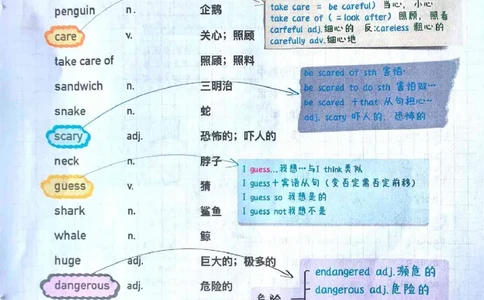 penguin n. 企鹅
care v. 关心；照顾
take care of 照顾；照料
sandwich n. 三明治
snake n. 蛇
scary adj. 恐怖的；吓人的
neck n. 脖子
guess v. 猜
shark n. 鲨鱼
whale n. 鲸
huge adj. 巨大的；极多的
dangerous adj. 危险的
take care = be careful) 当心，小心
take care of (=look after) 照顾，照看
carfeful adj.细心的 反:careless 粗心的
carefully adv.细心地
be scared of sth 害怕
be scared to do sth 害怕做…
be scared +that 从句担心…
adj. scary 吓人的，恐怖的
I guess...我想…与I think类似
I guess+宾语从句 (变否定需否定前移)
I guess so 我想是的
I guess not我想不是
endangered adj.濒危的
dangerous adj.危险的
危险